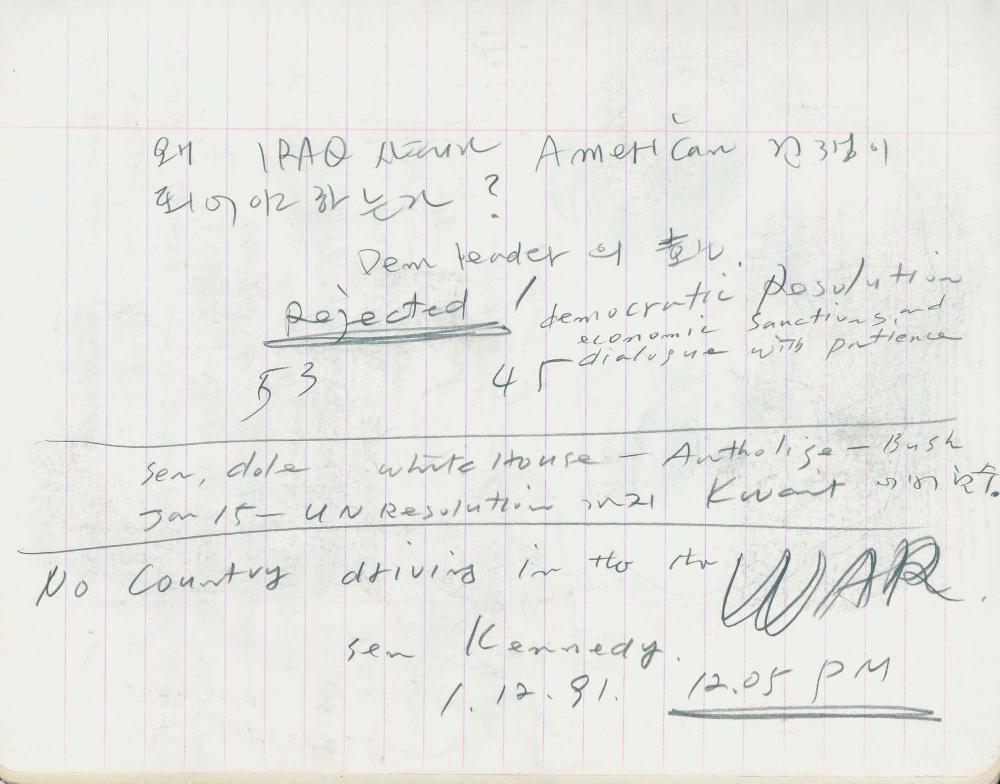 왜 IRAQ American 전쟁이
되어야 하는가 ?
Dem leader 의
Rejected / democratic Resolution
economic Sanctions and
dialogue with patience
53 45
Sen, dole White House — Autholize — Bush
Jan 15 — UN Resolution Kwait
No Country driving in tto the WAR.
sen Kennedy.
1. 12. 91. 12.05 PM